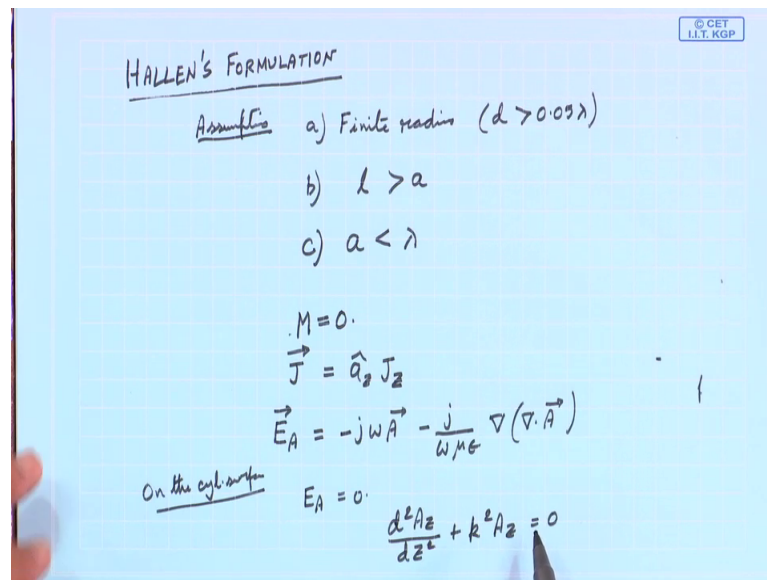 © CET
I.I.T. KGP
HALLEN'S FORMULATION
Assumptio a) Finite radius (d > 0.05λ)
b) l > a
c) a < λ
M = 0.
\vec{J} = \hat{a}_z J_z
\vec{E}_A = -jω\vec{A} - \frac{j}{ωμϵ} ∇(∇.\vec{A})
On the cyl. surface E_A = 0.
\frac{d^2A_z}{dz^2} + k^2A_z = 0